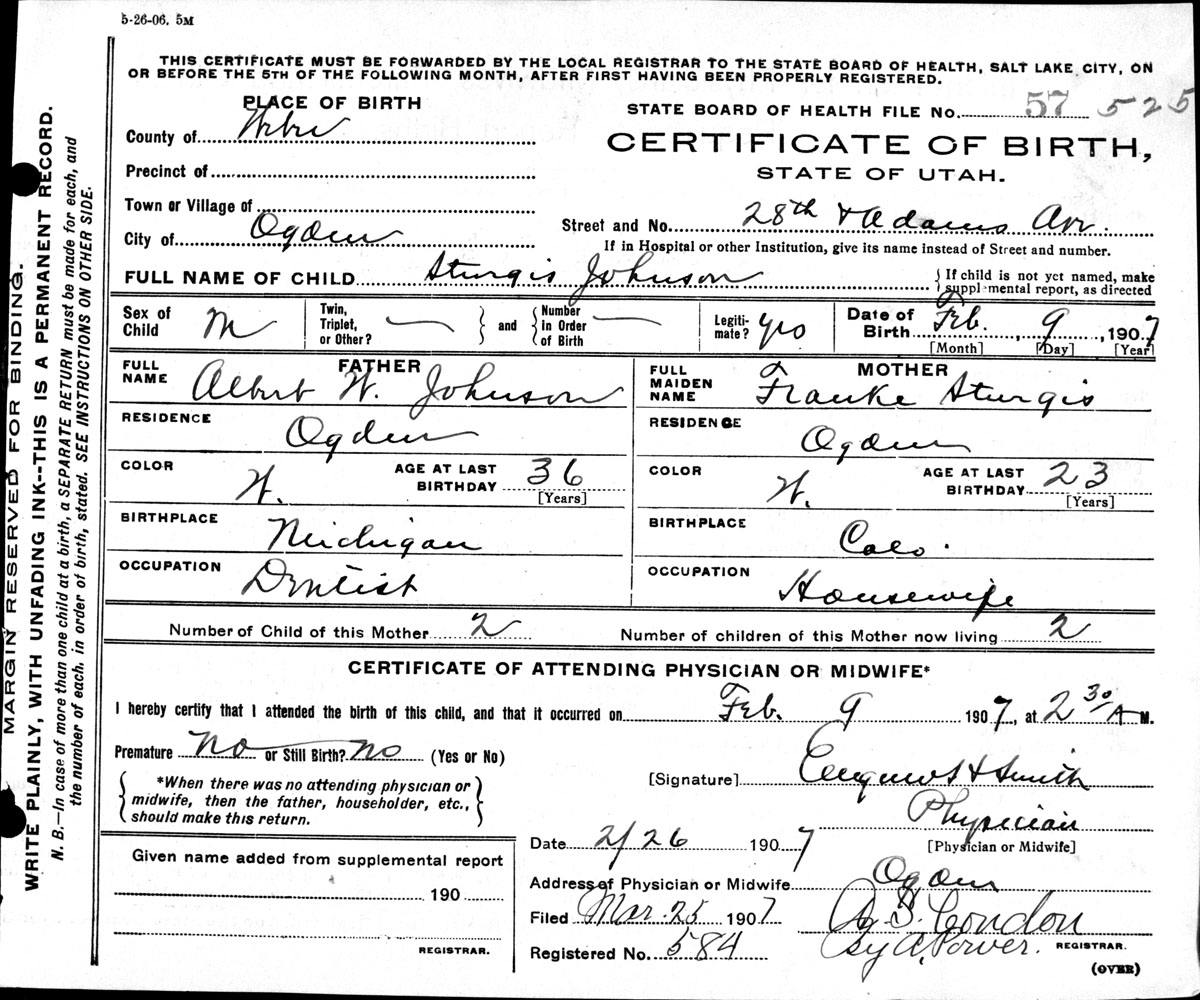 5-26-06. 5M
THIS CERTIFICATE MUST BE FORWARDED BY THE LOCAL REGISTRAR TO THE STATE BOARD OF HEALTH, SALT LAKE CITY, ON
OR BEFORE THE 5TH OF THE FOLLOWING MONTH, AFTER FIRST HAVING BEEN PROPERLY REGISTERED.
PLACE OF BIRTH
County of
Precinct of
Town or Village of
City of Ogden
STATE BOARD OF HEALTH FILE No. 57 525
CERTIFICATE OF BIRTH,
STATE OF UTAH.
Street and No. 28th & Adams Ave.
If in Hospital or other Institution, give its name instead of Street and number.
FULL NAME OF CHILD Sturgis Johnson
If child is not yet named, make
supplemental report, as directed
Sex of Child M
Twin, Triplet, or Other? —
and
Number in Order of Birth —
Legitimate? yes
Date of Birth Feb. 9, 1907
[Month] [Day] [Year]
FATHER
FULL NAME Albert W. Johnson
RESIDENCE Ogden
COLOR W.
AGE AT LAST BIRTHDAY 36
[Years]
BIRTHPLACE Michigan
OCCUPATION Dentist
MOTHER
FULL MAIDEN NAME Franke Sturgis
RESIDENCE Ogden
COLOR W.
AGE AT LAST BIRTHDAY 23
[Years]
BIRTHPLACE Colo.
OCCUPATION Housewife
Number of Child of this Mother 2
Number of children of this Mother now living 2
CERTIFICATE OF ATTENDING PHYSICIAN OR MIDWIFE*
I hereby certify that I attended the birth of this child, and that it occurred on Feb. 9 1907, at 2 30 A M.
Premature no or Still Birth? no (Yes or No)
*When there was no attending physician or
midwife, then the father, householder, etc.,
should make this return.
[Signature] & Smith
Physician
[Physician or Midwife]
Date 2/26 1907
Address of Physician or Midwife Ogden
Filed Mar. 25 1907
Registered No. 584
Condon
By A. Power. REGISTRAR.
(OVER)
Given name added from supplemental report
190
REGISTRAR.
MARGIN RESERVED FOR BINDING.
WRITE PLAINLY, WITH UNFADING INK--THIS IS A PERMANENT RECORD.
N. B.—In case of more than one child at a birth, a SEPARATE RETURN must be made for each, and
the number of each, in order of birth, stated. SEE INSTRUCTIONS ON OTHER SIDE.